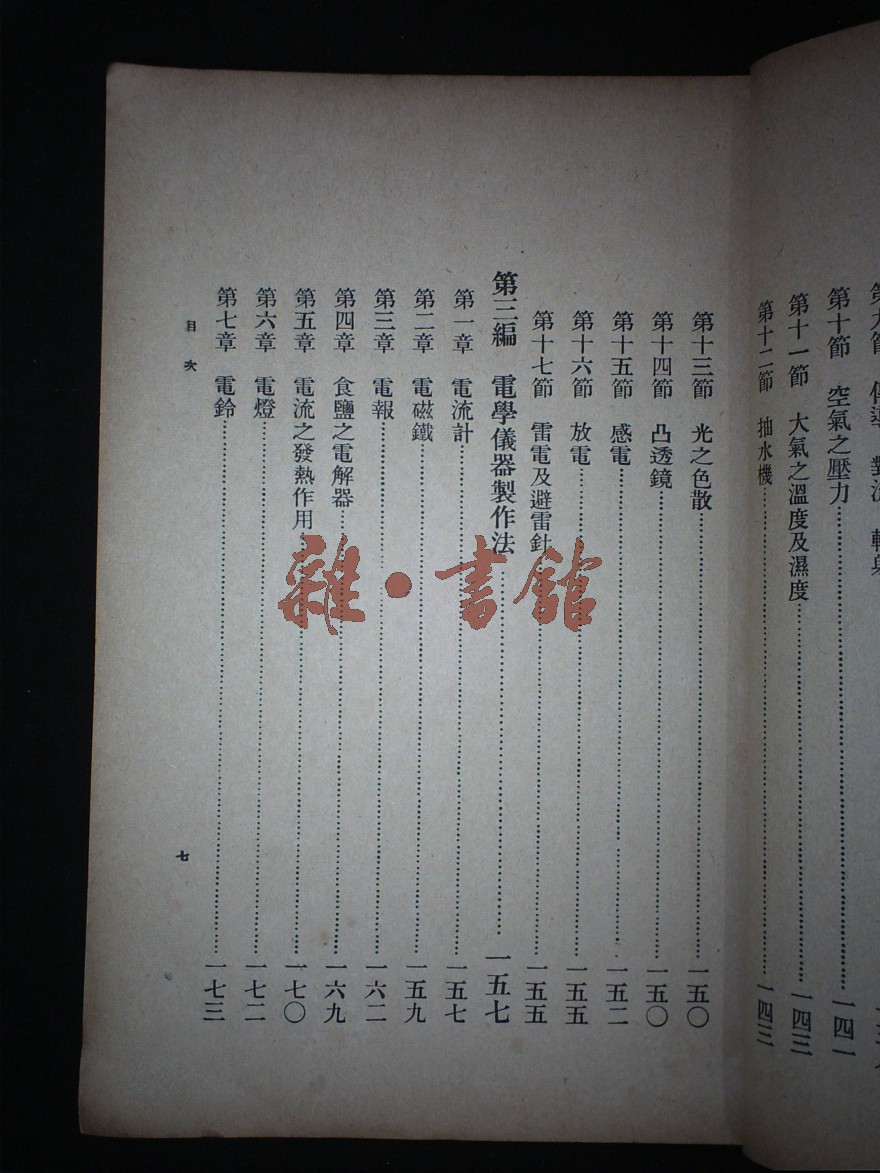 第十節　空氣之壓力……一四一
第十一節　大氣之溫度及濕度……一四三
第十二節　抽水機……一四三
第十三節　光之色散……一五〇
第十四節　凸透鏡……一五〇
第十五節　感電……一五二
第十六節　放電……一五五
第十七節　雷電及避雷針……一五五
第三編　電學儀器製作法……一五七
第一章　電流計……一五七
第二章　電磁鐵……一五九
第三章　電報……一六二
第四章　食鹽之電解器……一六九
第五章　電流之發熱作用……一七〇
第六章　電燈……一七二
第七章　電鈴……一七三
目次
七
雜·書館